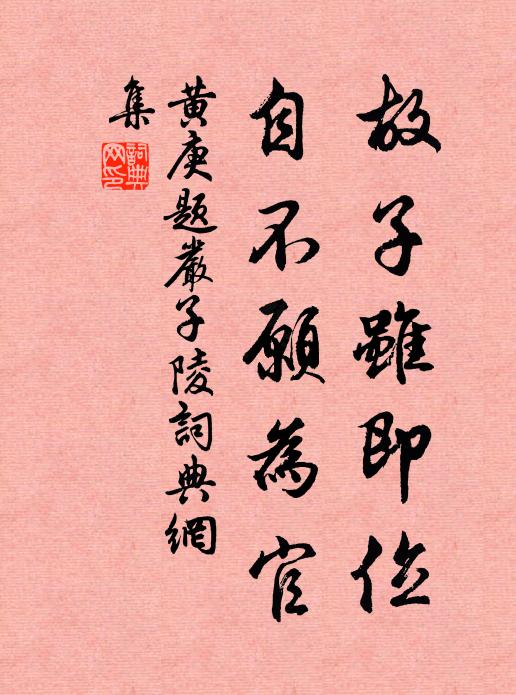 故子雖即位
自不願為官
黄庚题嚴子陵詞典網
集
詞典
网印